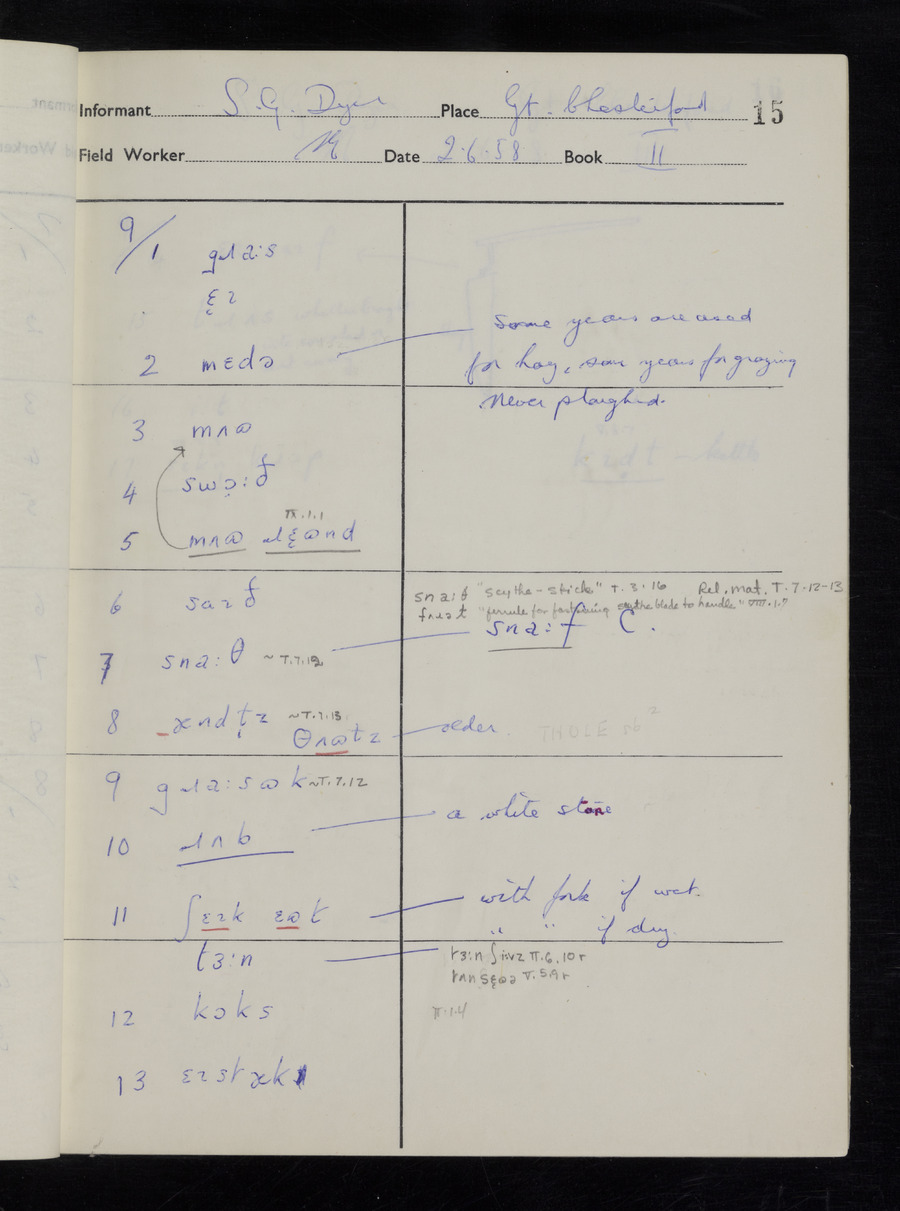 Informant S. G. Dyer Place Gt. Chesterford 15
Field Worker Date 2.6.58 Book II
9/1 gɹɑ:s
ɛɪ
Some years are used
2 mɛdə for hay, som years for grazing
Never ploughed.
3 mʌʊ
4 swɔ̣:ð
π.1.1
5 mʌʊ ɹɛ̣ʊnd
snɑ:ð "scythe-stick" T.3.16 Rel. mat. T.7-12-13
6 saɪð
"ferrule for fastening scythe blade to handle" VIII.1.7
snɑ:f C.
7 snɑ:θ ~T.7.12
8 ændt̩z ~T.7.13
θʌʊtz older. THOLE sb²
9 gɹɑ:sʊk ~T.7.12
10 ɹʌb a white stone
11 ʃɛɪk ɛʊt with fork if wet.
" " if dry.
tɜ:n tɜ:n ʃɪvz π.6.10r
V.5.9r
12 kɔks π.1.4
13 ɛɪstæk